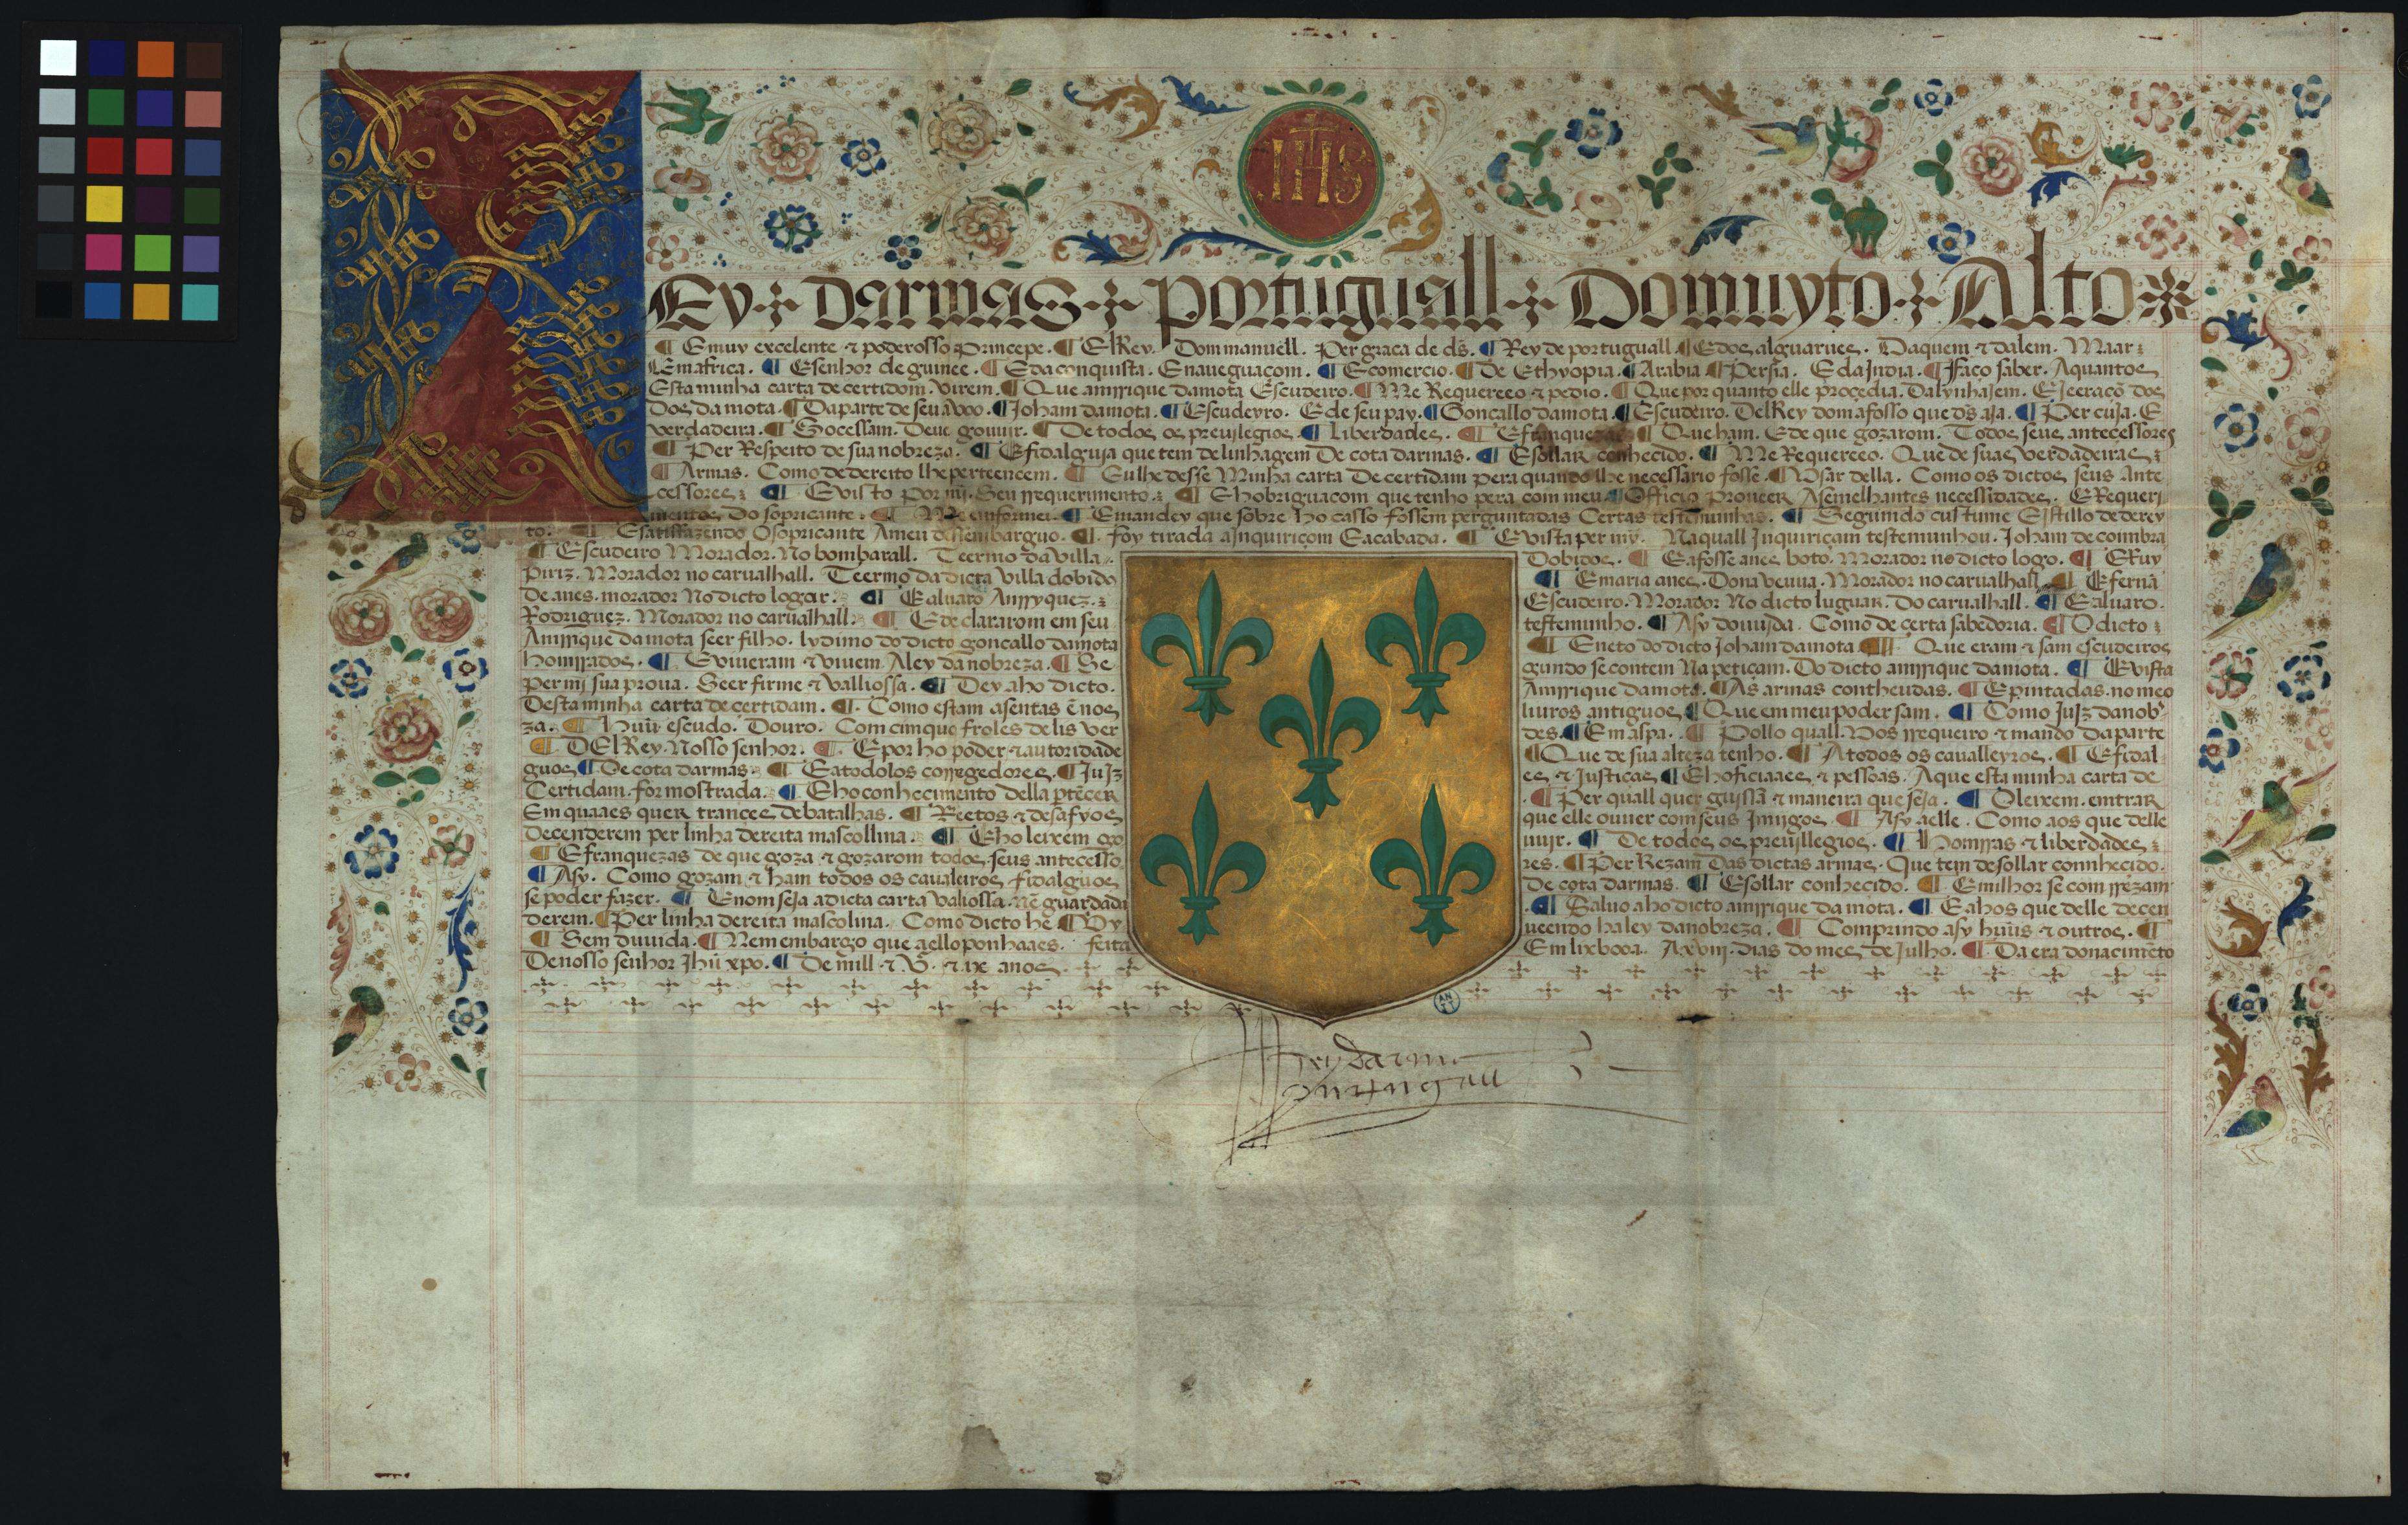 IHS
Ey darmas portuguall Do muyto Alto
¶ E muy excelente ⁊ poderosso principe. ¶ ElRey. Dom manuell. Per graca de ds̃. ¶ Rey de portuguall ¶ E dos alguarues. Daquem ⁊ dalem. Maar :
Em africa. ¶ E senhor de guinee. ¶ E da conquista. E naueguacom. ¶ E comercio. ¶ De Ethyopia. ¶ Arabia ¶ Persia. E da India. ¶ Faco saber. A quantos
Esta minha carta de certidom. virem. ¶ Que anrrique da mota Escudeiro. ¶ Me Requereo ⁊ pedio. ¶ Que por quanto elle procedia. Da lynhajem. E Jeeraçõ dos
Dos da mota. ¶ Da parte de seu Avoo. ¶ Joham da mota. ¶ Escudeyro. E de seu pay. ¶ Goncallo da mota. ¶ Escudeiro. Del Rey dom afosso que ds̃ aja. ¶ Per cuja. E
verdadeira. ¶ Socessam. Deue gouuir. ¶ De todos os preuilegios. ¶ Liberdades. ¶ E franquezas ¶ Que ham. E de que gozarom. Todos seus antecessores
¶ Per Respeito de sua nobreza. ¶ E fidalguja que tem de linhagem De cota darmas. ¶ E sollar conhecido. ¶ Me Requereo. Que de suas verdadeiras :
¶ Armas. Como de dereito lhe perteencem. ¶ Eu lhe desse Minha carta De certidam pera quando lhe necessario fosse. ¶ Vsar della. Como os dictos seus Ante
cessores : ¶ E visto por mj. Seu rrequerimento. : ¶ E hobriguacom que tenho pera com meu ¶ Officio Proueer A semelhantes necessidades. E Requeri
mentos Do sopricante. ¶ Me emformei. ¶ E mandey que sobre ho casso fossem perguntadas Certas testemunhas. ¶ Segundo custume E stillo de derey
to. ¶ E satisfazendo O sopricante A meu desembarguo. ¶ foy tirada a Inquiricom E acabada. ¶ E vista per my. Na quall Inquiricam testemunhou. Joham de coimbra
¶ Escudeiro Morador. No bombarall. Teermo da villa. Dobidos. ¶ E afosse anes boto. Morador no dicto logo. ¶ E Ruy
Piriz. Morador no carualhall. Teermo da dicta villa dobido ¶ E maria anes. Dona veuua. Morador no carualhall ¶ E fernã
De anes. morador No dicto logar. ¶ E aluaro Anrryquez. : Escudeiro. Morador No dicto luguar. Do carualhall. ¶ E aluaro.
Rodriguez. Morador no carualhall. ¶ E declararom em seu testemunho. ¶ Asy douuida. Como de certa sabedoria. ¶ O dicto :
Anrrique da mota seer filho. lydimo do dicto goncallo da mota ¶ E neto do dicto Joham da mota. ¶ Que eram ⁊ sam escudeiros
homrrados. ¶ E viueram ⁊ viuem A ley da nobreza. ¶ Se gundo se contem Na peticam. Do dicto anrrique da mota. ¶ E vista
per mj sua proua. Seer firme ⁊ valliossa. ¶ Dey a ho dicto. Anrrique da mota. ¶ As armas contheudas. ¶ E pintadas. no meo
Desta minha carta de certidam. ¶. Como estam asentas ẽ nos liuros antiguos ¶ Que em meu poder sam. ¶ Como Juiz da nob
za. ¶ Huũ escudo. Douro. Com cimquo froles de lis ver des. ¶ Em aspa. ¶ Pollo quall. Vos rrequeiro ⁊ mando da parte
¶ DElRey. Nosso senhor. ¶. E por ho poder ⁊ autoridade ¶ Que de sua alteza tenho. ¶ A todos os caualleyros. ¶ E fidal
guos ¶ De cota darmas : ¶ E a todolos corregedores. ¶ Juiz es ⁊ Justicas ¶ E hoficiaaes ⁊ pessoas. A que esta minha carta de
Certidam. for mostrada. ¶ E ho conhecimento della ptẽcer ¶ Per quall quer guissa ⁊ maneira que seja. ¶ O leixem. entrar
Em quaaes quer trances de batalhas. ¶ Reetos ⁊ desafyos que elle ouuer com seus Imijgos ¶ Asy a elle. Como aos que delle
Decenderem per linha dereita mascollina. ¶ E ho leixem go uuir. ¶ De todos os preuillegios. ¶ Homrras ⁊ liberdades :
¶ E franquezas de que goza ⁊ gozarom todos seus antecesso res. ¶ Per Rezam Das dictas armas. Que tem de sollar connhecido.
¶ Asy. Como gozam ⁊ ham todos os caualeiros fidalguos De cota darmas. ¶ E sollar conhecido. ¶. E milhor se com rrezam
se poder fazer. ¶ E nom seja a dicta carta valiossa. nẽ guardada ¶ Saluo a ho dicto anrrique da mota. ¶ E a hos que delle decen
derem. ¶ Per linha dereita mascolina. Como dicto he ¶ Vy ueendo ha ley da nobreza. ¶ Comprindo asy huũs ⁊ outros. ¶
¶ Sem duuida. ¶ Nem embargo que a ello ponhaaes. feita Em lixboaa. A xviij. dias do mes de Julho. ¶ Da era do nacimẽto
De nosso senhor Jhũ xpo. ¶ De mill ⁊ Vᶜ. ⁊ ix anos.
Rey darmas
portugall
AN
TT